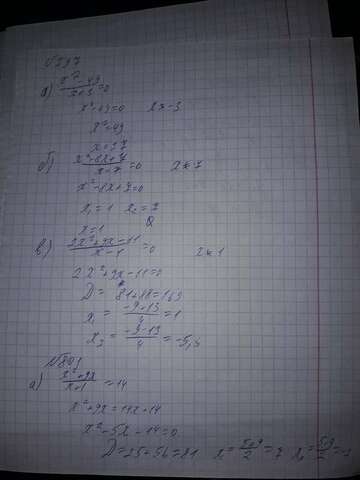 а) x²-49 / x+3 =0
x²-49=0 x≠-3
x²=49
x=±7
б) x²-8x+7 / x-7 =0 x≠7
x²-8x+7=0
x₁=1 x₂=7
x=1
в) 2x²+9x-11 / x-1 =0 x≠1
2x²+9x-11=0
D= 81+88=169
x₁= -9+13 / 4 =1
x₂= -9-13 / 4 =-5,5
а) x²+9x / x+1 =14
x²+9x=14x+14
x²-5x-14=0
D=25+56=81 x= 5+9 / 2 =7 x₂= 5-9 / 2 =-2